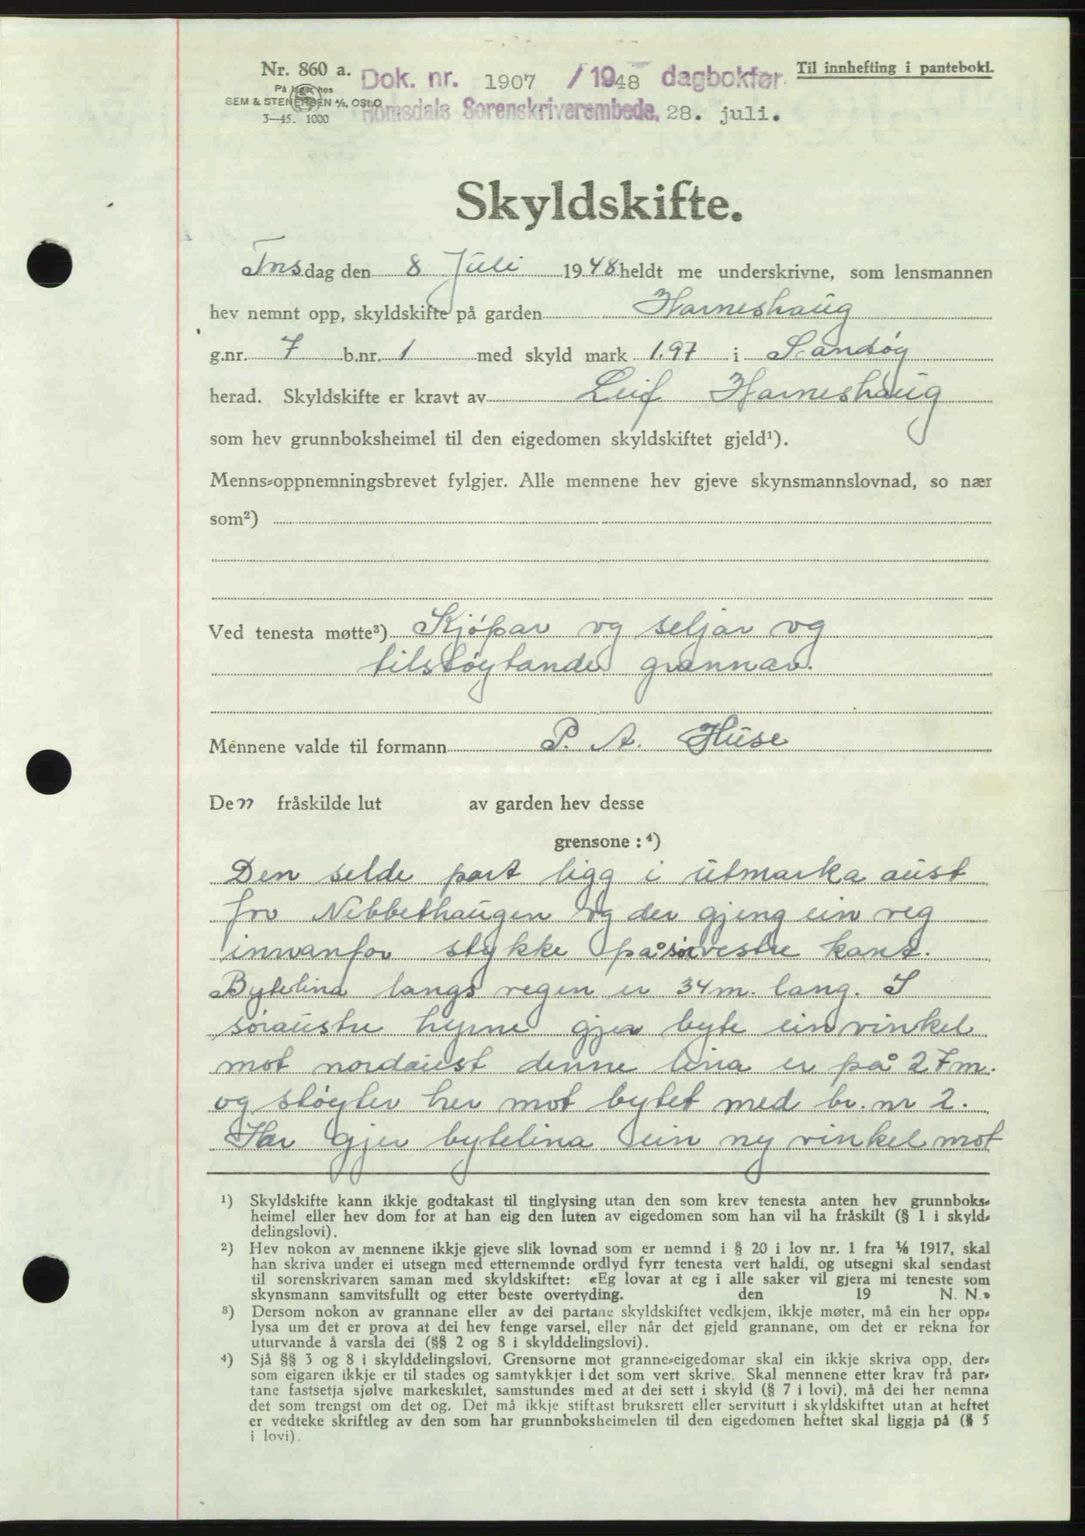 Nr. 860 a.
På lager hos
SEM & STENERSEN A/S, OSLO
3—45. 1000
Dok. nr. 1907 / 1948 dagbokfør
Romsdals Sorenskriverembede, 28. juli.
Til innhefting i pantebokl.
Skyldskifte.
Tors dag den 8 Juli 1948 heldt me underskrivne, som lensmannen
hev nemnt opp, skyldskifte på garden Harneshaug
g.nr. 7 b.nr. 1 med skyld mark 1.97 i Sandøy
herad. Skyldskifte er kravt av Leif Harneshaug
som hev grunnboksheimel til den eigedomen skyldskiftet gjeld¹).
Menns-oppnemningsbrevet fylgjer. Alle mennene hev gjeve skynsmannslovnad, so nær
som²)
Ved tenesta møtte³) Kjøpar og seljar og
tilstøytande grannar.
Mennene valde til formann P. A. Huse
Den fråskilde lut av garden hev desse
grensone : ⁴)
Den selde part ligg i utmarka aust
fro Nebbethaugen og der gjeng ein veg
innanfor stykke på sørvestre kant.
Bytelina langs vegen er 34 m. lang. I
søraustre hyrne gjer byte ein vinkel
mot nordaust denne lina er på 27 m.
og støyter her mot bytet med br. nr 2.
Her gjer bytelina ein ny vinkel mot
¹) Skyldskifte kann ikkje godtakast til tinglysing utan den som krev tenesta anten hev grunnboks-
heimel eller hev dom for at han eig den luten av eigedomen som han vil ha fråskilt (§ 1 i skyld-
delingslovi).
²) Hev nokon av mennene ikkje gjeve slik lovnad som er nemnd i § 20 i lov nr. 1 fra 1/6 1917, skal
han skriva under ei utsegn med etternemnde ordlyd fyrr tenesta vert haldi, og utsegni skal sendast
til sorenskrivaren saman med skyldskiftet: «Eg lovar at eg i alle saker vil gjera mi teneste som
skynsmann samvitsfullt og etter beste overtyding. den 19 N. N.»
³) Dersom nokon av grannane eller av dei partane skyldskiftet vedkjem, ikkje møter, må ein her opp-
lysa um det er prova at dei hev fenge varsel, eller når det gjeld grannane, om det er rekna for
uturvande å varsla dei (§§ 2 og 8 i skylddelingslovi).
⁴) Sjå §§ 3 og 8 i skylddelingslovi. Grensorne mot granne-eigedomar skal ein ikkje skriva opp, der-
som eigaren ikkje er til stades og samtykkjer i det som vert skrive. Skal mennene etter krav frå par-
tane fastsetja sjølve markeskilet, samstundes med at dei sett i skyld (§ 7 i lovi), må dei her nemna
det som trengst om det og. Det må ikkje stiftast bruksrett eller servitutt i skyldskiftet utan at heftet
er vedteke skriftleg av den som har grunnboksheimelen til den eigedomen heftet skal liggja på (§ 5
i lovi).